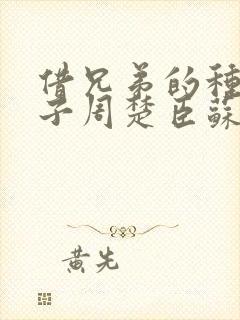 借兄弟的種
子周楚臣蘇
黃先